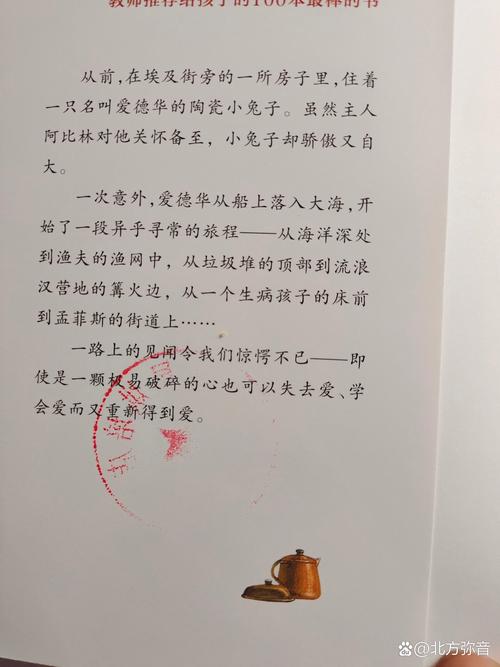 教师推荐给孩子的100本最棒的书
从前,在埃及街旁的一所房子里,住着
一只名叫爱德华的陶瓷小兔子。虽然主人
阿比林对他关怀备至，小兔子却骄傲又自
大。
一次意外,爱德华从船上落入大海,开
始了一段异乎寻常的旅程——从海洋深处
到渔夫的渔网中，从垃圾堆的顶部到流浪
汉营地的篝火边，从一个生病孩子的床前
到孟菲斯的街道上……
一路上的见闻令我们惊愕不已——即
使是一颗极易破碎的心也可以失去爱、学
会爱而又重新得到爱。
百度 @北方弥音